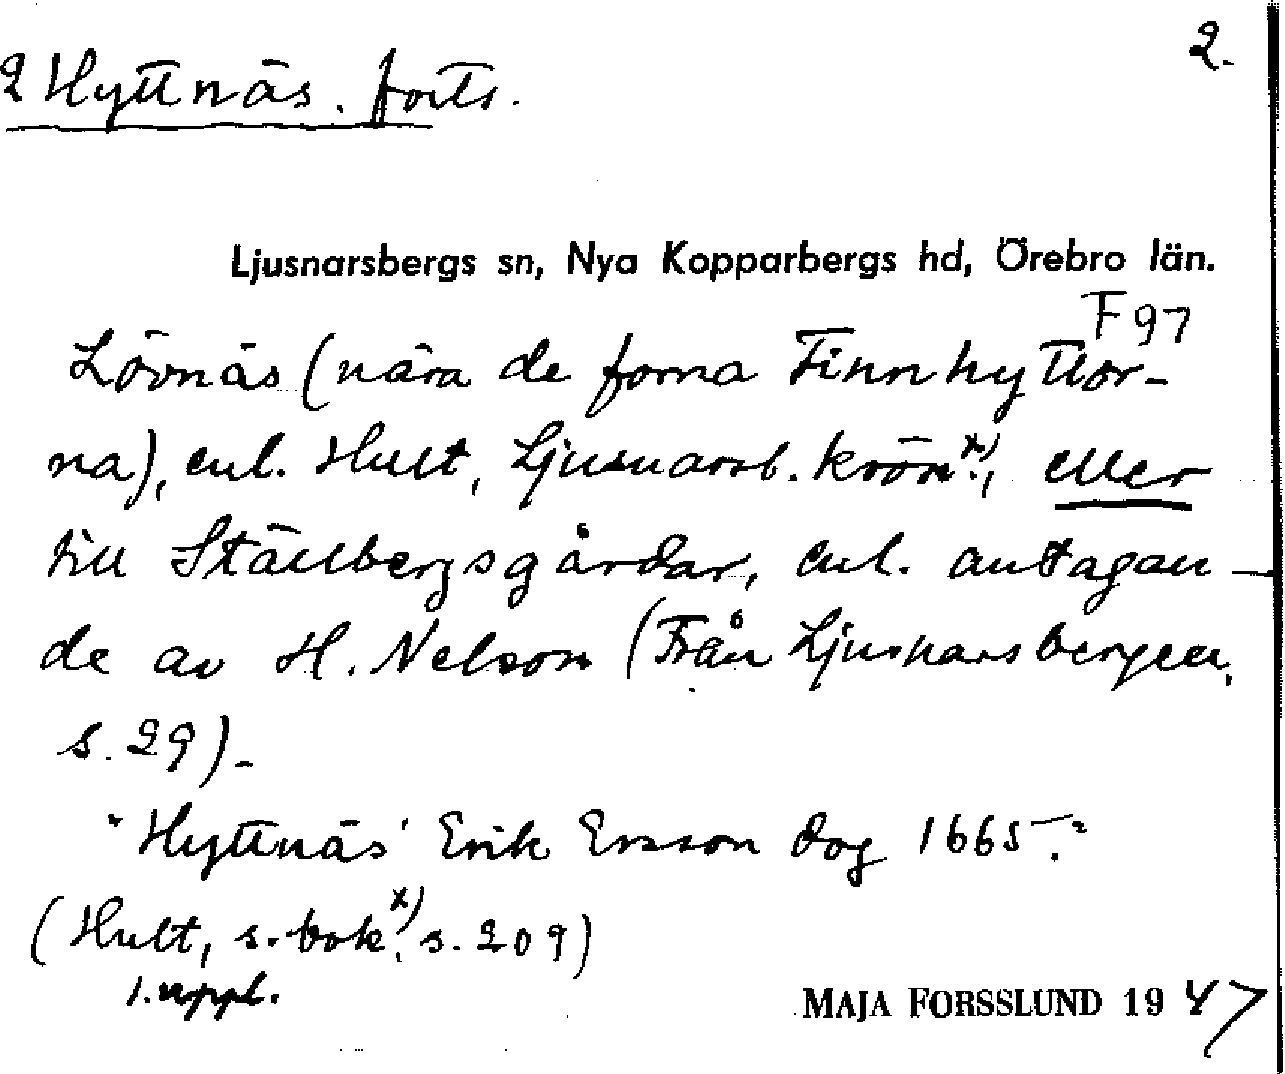 2.
2 Hyttnäs. forts.
Ljusnarsbergs sn, Nya Kopparbergs hd, Örebro län.
F 97
Lövnäs (nära de forna Finnhyttor-
na), enl. Hult, Ljusnarsb. krön.x), eller
till Ställbergsgårdar, enl. antagan-
de av H. Nelson (Från Ljusnarsbergen,
s. 29).
"Hyttnäs" Erik Ersson dog 1665."
(Hult, s. bok x), s. 209)
1. uppl.
MAJA FORSSLUND 1947